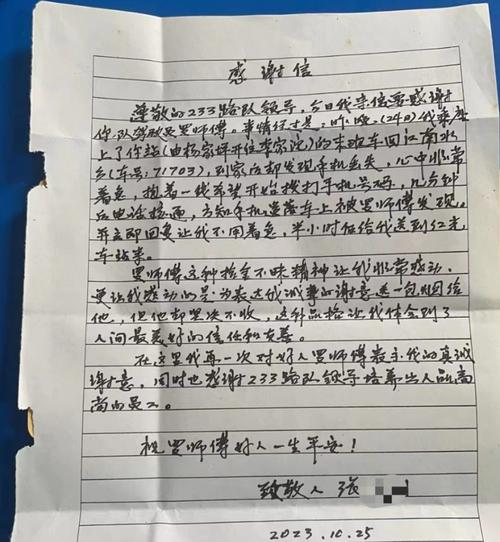 感谢信
尊敬的233路队领导，今日我来信要感谢
你队驾驶员罗师傅。事情经过是：昨晚（24日）我乘座
上了你站（由杨家坪开往李家沱）的末班车回江南水
乡（车号：71703），到家后却发现手机丢失，心中非常
着急，抱着一线希望开始拨打手机号码，几分钟
后电话接通，方知手机遗落车上被罗师傅发现，
并立即回复让我不用着急，半小时后给我送到红光
车站来。
罗师傅这种拾金不昧精神让我非常感动，
更让我感动的是为表达我诚挚的谢意送一包烟给
他，但他却坚决不收，这种品格让我体会到了
人间最美好的信任和友善。
在这里我再一次对好人罗师傅表示我的真诚
谢意，同时也感谢233路队领导培养出人品高
尚的员工。
祝罗师傅好人一生平安！
致敬人 张
2023.10.25